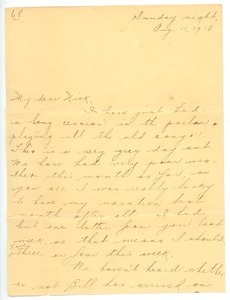 Sunday night,
Aug 11, 1918
My dear Kick,
I have just had
a long session in the parlor
playing all the old songs.
This is a very grey day out
We have had very poor wea-
ther this month so far, so
you see I was really lucky
to have my vacation last
month after all. I had
but one letter from you last
week, so that means I should
have three or four this week.
We haven't heard whether
or not Bill has arrived on